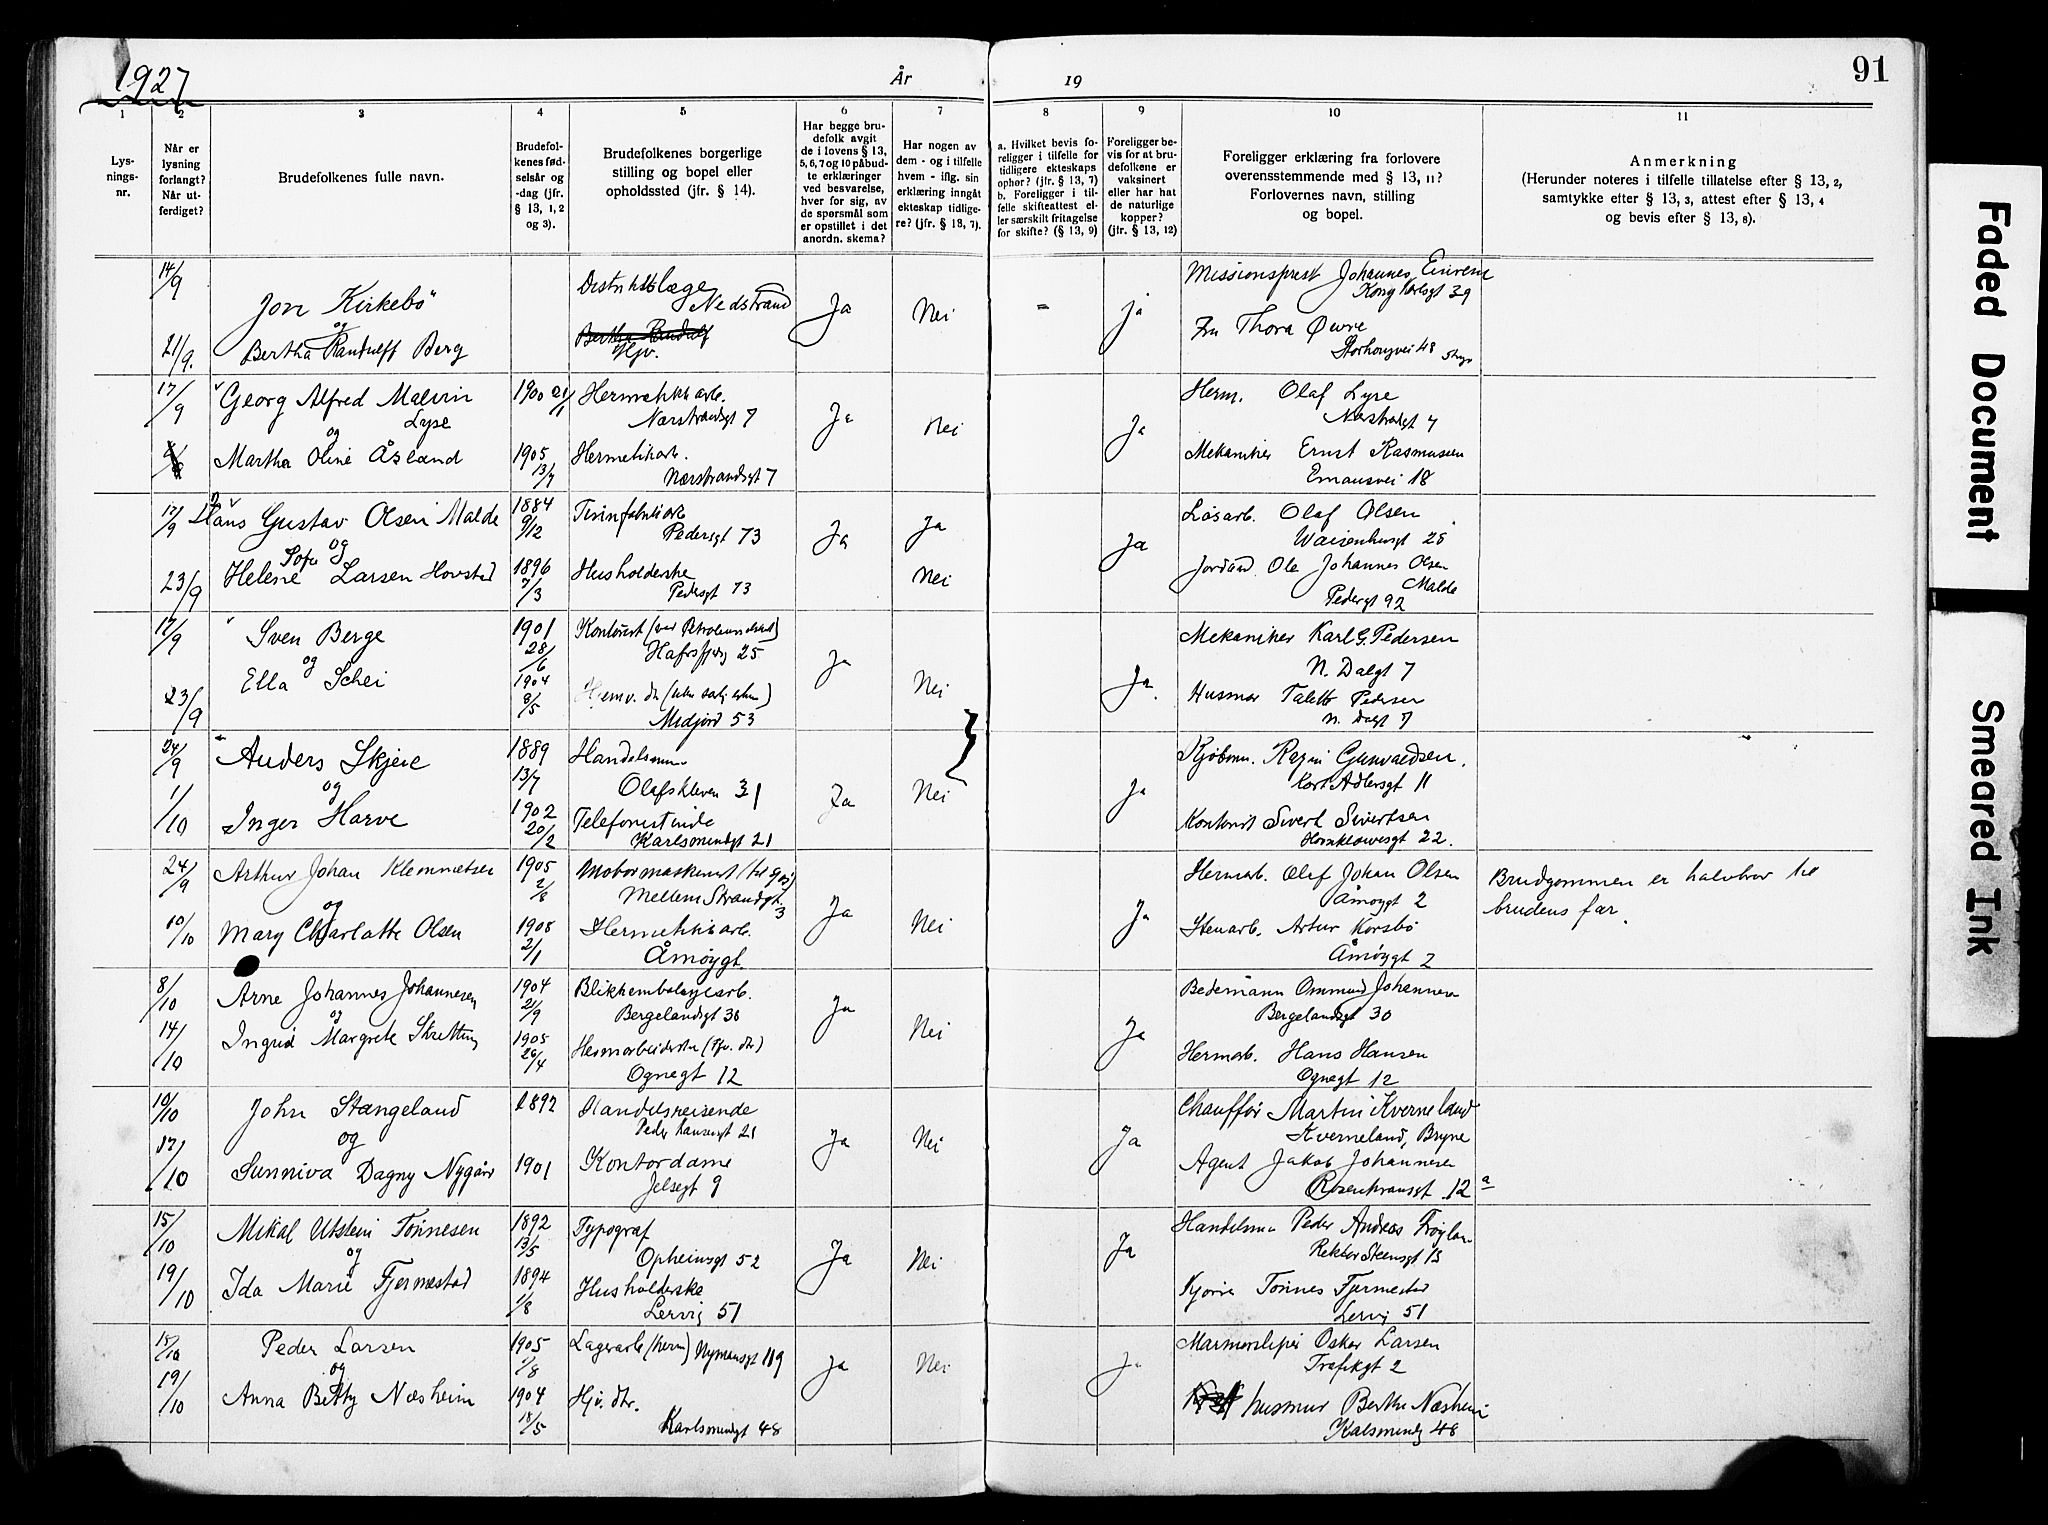 1927
År
19
91
1
2
3
4
5
6
7
8
9
10
11
Lys-
nings-
nr.
Når er
lysning
forlangt?
Når ut-
ferdiget?
Brudefolkenes fulle navn.
Brudefol-
kenes fød-
selsår og
-dag (jfr.
§ 13, 1, 2
og 3).
Brudefolkenes borgerlige
stilling og bopel eller
opholdssted (jfr. § 14).
Har begge bru-
defolk avgit
de i lovens § 13,
5, 6, 7 og 10 påbud-
te erklæringer
ved besvarelse,
hver for sig, av
de spørsmål som
er opstillet i det
anordn. skema?
Har nogen av
dem - og i tilfelle
hvem - iflg. sin
erklæring inngått
ekteskap tidlige-
re? (jfr. § 13, 7).
a. Hvilket bevis fo-
religger i tilfelle for
tidligere ekteskaps
ophør? (jfr. § 13, 7)
b. Foreligger i til-
felle skifteattest el-
ler særskilt fritagelse
for skifte? (§ 13, 9)
Foreligger be-
vis for at bru-
defolkene er
vaksinert
eller har hat
de naturlige
kopper?
(jfr. § 13, 12)
Foreligger erklæring fra forlovere
overensstemmende med § 13, 11?
Forlovernes navn, stilling
og bopel.
Anmerkning
(Herunder noteres i tilfelle tillatelse efter § 13, 2,
samtykke efter § 13, 3, attest efter § 13, 4
og bevis efter § 13, 8).
14/9
21/9.
Jon Kirkebö
og
Bertha Randulff Berg
Distriktslæge
Nedstrand
Hjv.
Ja
Nei
-
Ja
Missionsprest Johannes
Kong Karlsgt 39
Fru Thora Øvre
Storhougvei 48
17/9
Georg Alfred Malvin
Lyse
og
Martha Oline Åsland
1900 21/1
1905
13/7
Hermetikk arb.
Nærstrandsgt 7
Hermetikarb.
Nærstrandsgt 7
Ja
Nei
Ja
Herm. Olaf Lyse
Nærstrandsgt 7
Mekaniker Ernst Rasmussen
Emausvei 18
17/9
23/9
Hans Gustav Olsen Malde
og
Helene Sofie Larsen Hovstad
1884
9/12
1896
7/3
Pedersgt 73
Husholderske
Pedersgt 73
Ja
Ja
Nei
Ja
Løsarb. Olaf Olsen
Waisenhusgt 25
Ole Johannes Olsen
Malde
Pedersgt 92
17/9
23/9
Sven Berge
og
Ella Schei
1901
28/6
1904
8/5
Kontorist
Hafrsfjordg 25
Midjord 53
Ja
Nei
Ja.
Mekaniker Karl G. Pedersen
N. Dalgt 7
Husmor Talette Pedersen
N. Dalgt 7
24/9
1/10
Anders Skjeie
og
Inger Harve
1889
13/7
1902
20/2
Handelsmann
Olafskleven 31
Telefonistinde
Karlsmindgt 21
Ja
Nei
Ja
Kjøbm. Ragni Gunvaldsen.
Cort Adlersgt 11
Kontorist Sivert Sivertsen
Hornklovesgt 22.
24/9
10/10
Arthur Johan Klemmetsen
og
Mary Charlotte Olsen
1905
2/8
1908
2/1
Motormaskinist
Mellem Strandgt.
3
Hermetikk arb.
Åmøygt.
Ja
Nei
Ja
Hermarb. Olaf Johan Olsen
Åmøygt 2
Stenarb. Artur Korsbö
Åmøygt 2
Brudgommen er halvbror til
brudens far.
8/10
14/10
Arne Johannes Johannesen
og
Ingrid Margrete Skretting
1904
21/9
1905
26/4
Blikkemballagearb.
Bergelandsgt 30
Hermarbeiderske (Hjv. dtr)
Ognegt 12
Ja
Nei
Ja
Bedemann Ommund Johannesen
Bergelandsgt 30
Hermarb. Hans Hansen
Ognegt 12
10/10
17/10
John Stangeland
og
Sunniva Dagny Nygård
1892
1901
Handelsreisende
Peder Klausensgt 21
Kontordame
Jelsegt 9
Ja
Nei
Ja
Chauffør Martin Kverneland
Kverneland, Bryne
Agent Jakob Johannesen
Rosenkransgt 12 a
15/10
19/10
Mikal Utstein Tønnesen
og
Ida Marie Fjermestad
1892
13/5
1894
1/8
Typograf
Opheimsgt 52
Husholderske
Lervig 51
Ja
Nei
Ja
Handelsm Peder Andreas Frøyland
Rektor Steensgt 13
Tønnes Fjermestad
Lervig 51
18/10
19/10
Peder Larsen
og
Anna Betty Næsheim
1905
1/8
1904
18/5
Lagerarb (herm) Nymansgt 119
Hjv. dtr.
Karlsmindgt 48
Ja
Nei
Ja
Marmorsliper Oskar Larsen
Trafikgt 2
husmor Berthe Næsheim
Kalsmindg 48
Faded Document
Smeared Ink